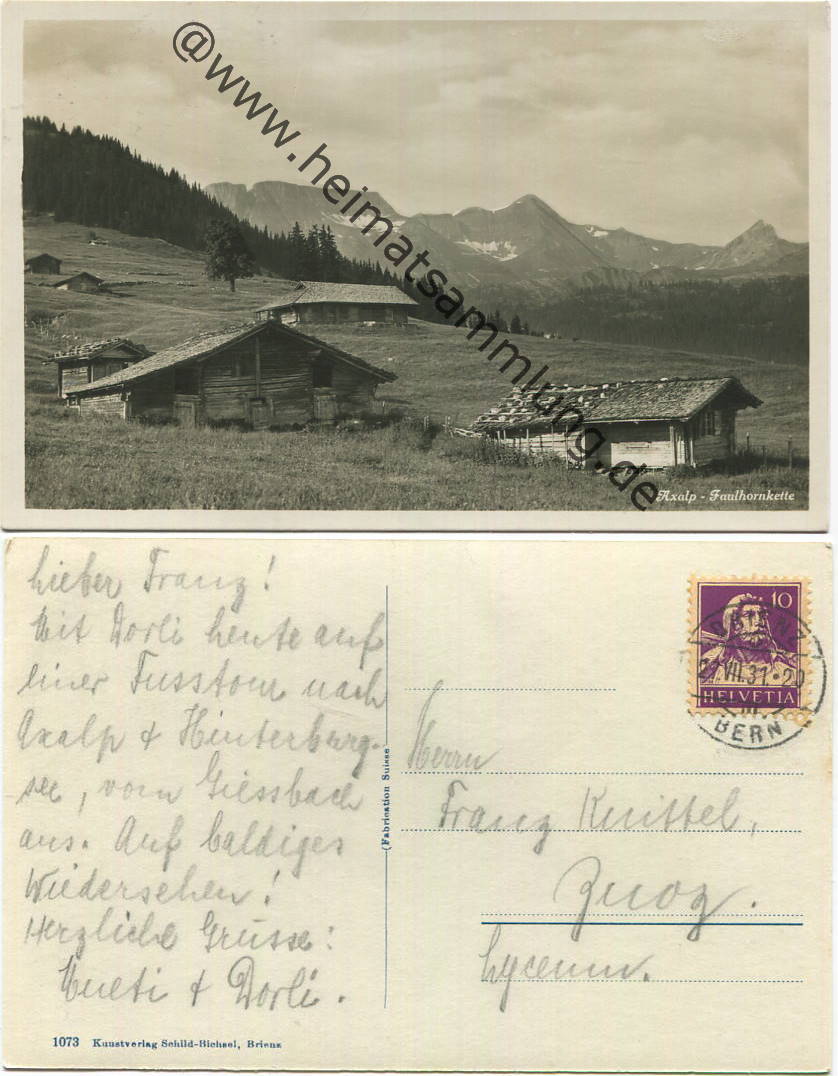 @www.heimatsammlung.de
Axalp - Faulhornkette
Lieber Franz!
Mit Dorli heute auf
einer Fusstour nach
Axalp & Hinterburg-
see, vom Giessbach
aus. Auf baldiges
Wiedersehen!
Herzliche Grüsse:
Mueti & Dorli.
(Fabrication Suisse
10
HELVETIA
VII.31
BERN
Herrn
Franz Knittel,
Zuoz.
Lyceum.
1073 Kunstverlag Schild-Bichsel, Brienz